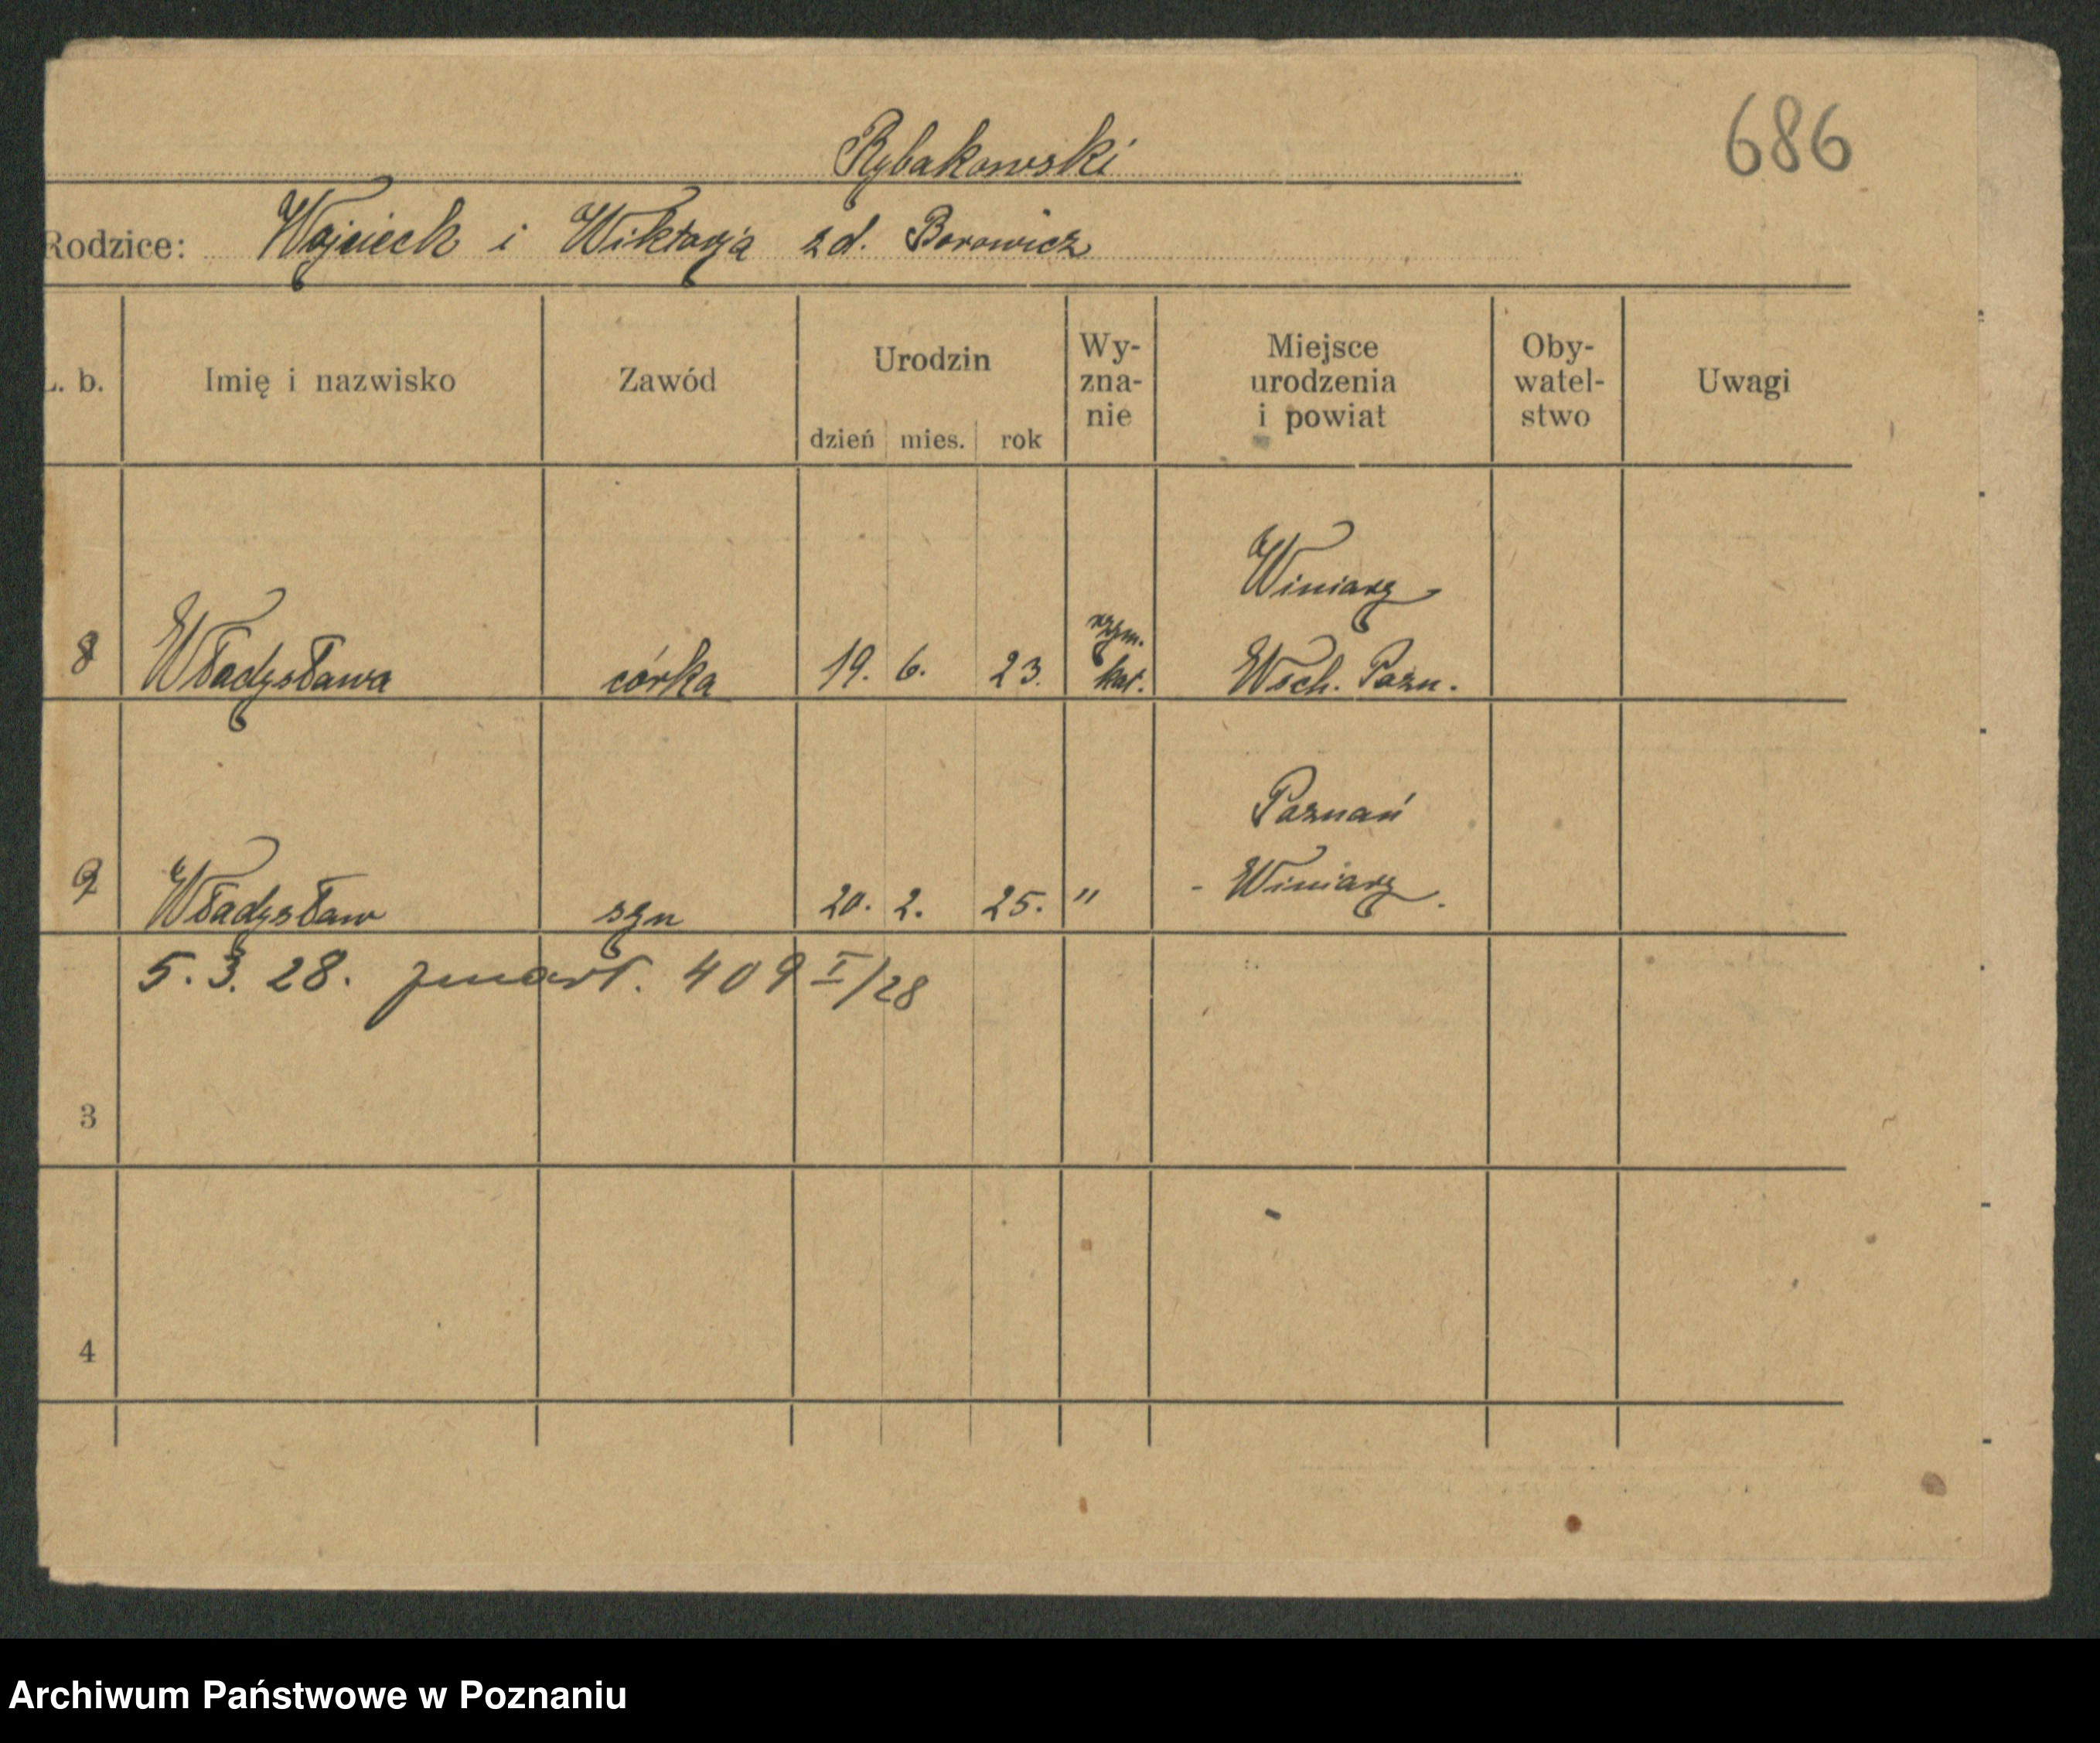 686
Rybakowski
Rodzice: Wojciech i Wiktorja zd. Borowicz
L. b.
Imię i nazwisko
Zawód
Urodzin
dzień mies. rok
Wy-
zna-
nie
Miejsce
urodzenia
i powiat
Oby-
watel-
stwo
Uwagi
8 Władysława córka 19. 6. 23. rzym. kat. Winiary
Wsch. Pozn.
9 Władysław syn 20. 2. 25. " Poznań
- Winiary.
5. 3. 28. zmarł. 409 I/28
3
4
Archiwum Państwowe w Poznaniu